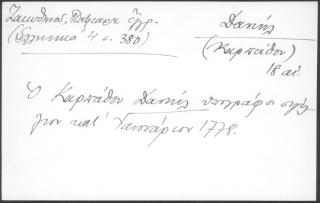 Ζακυθηνοῦ, Πατριαρχ. ἔγγρ.
(Ἑλληνικά 4 σ. 380)
Δανιήλ
(Καρπάθου)
18 αἰ.
Ὁ Καρπάθου Δανιήλ ὑπογράφει
κατ' Ἰανουάριον 1778.